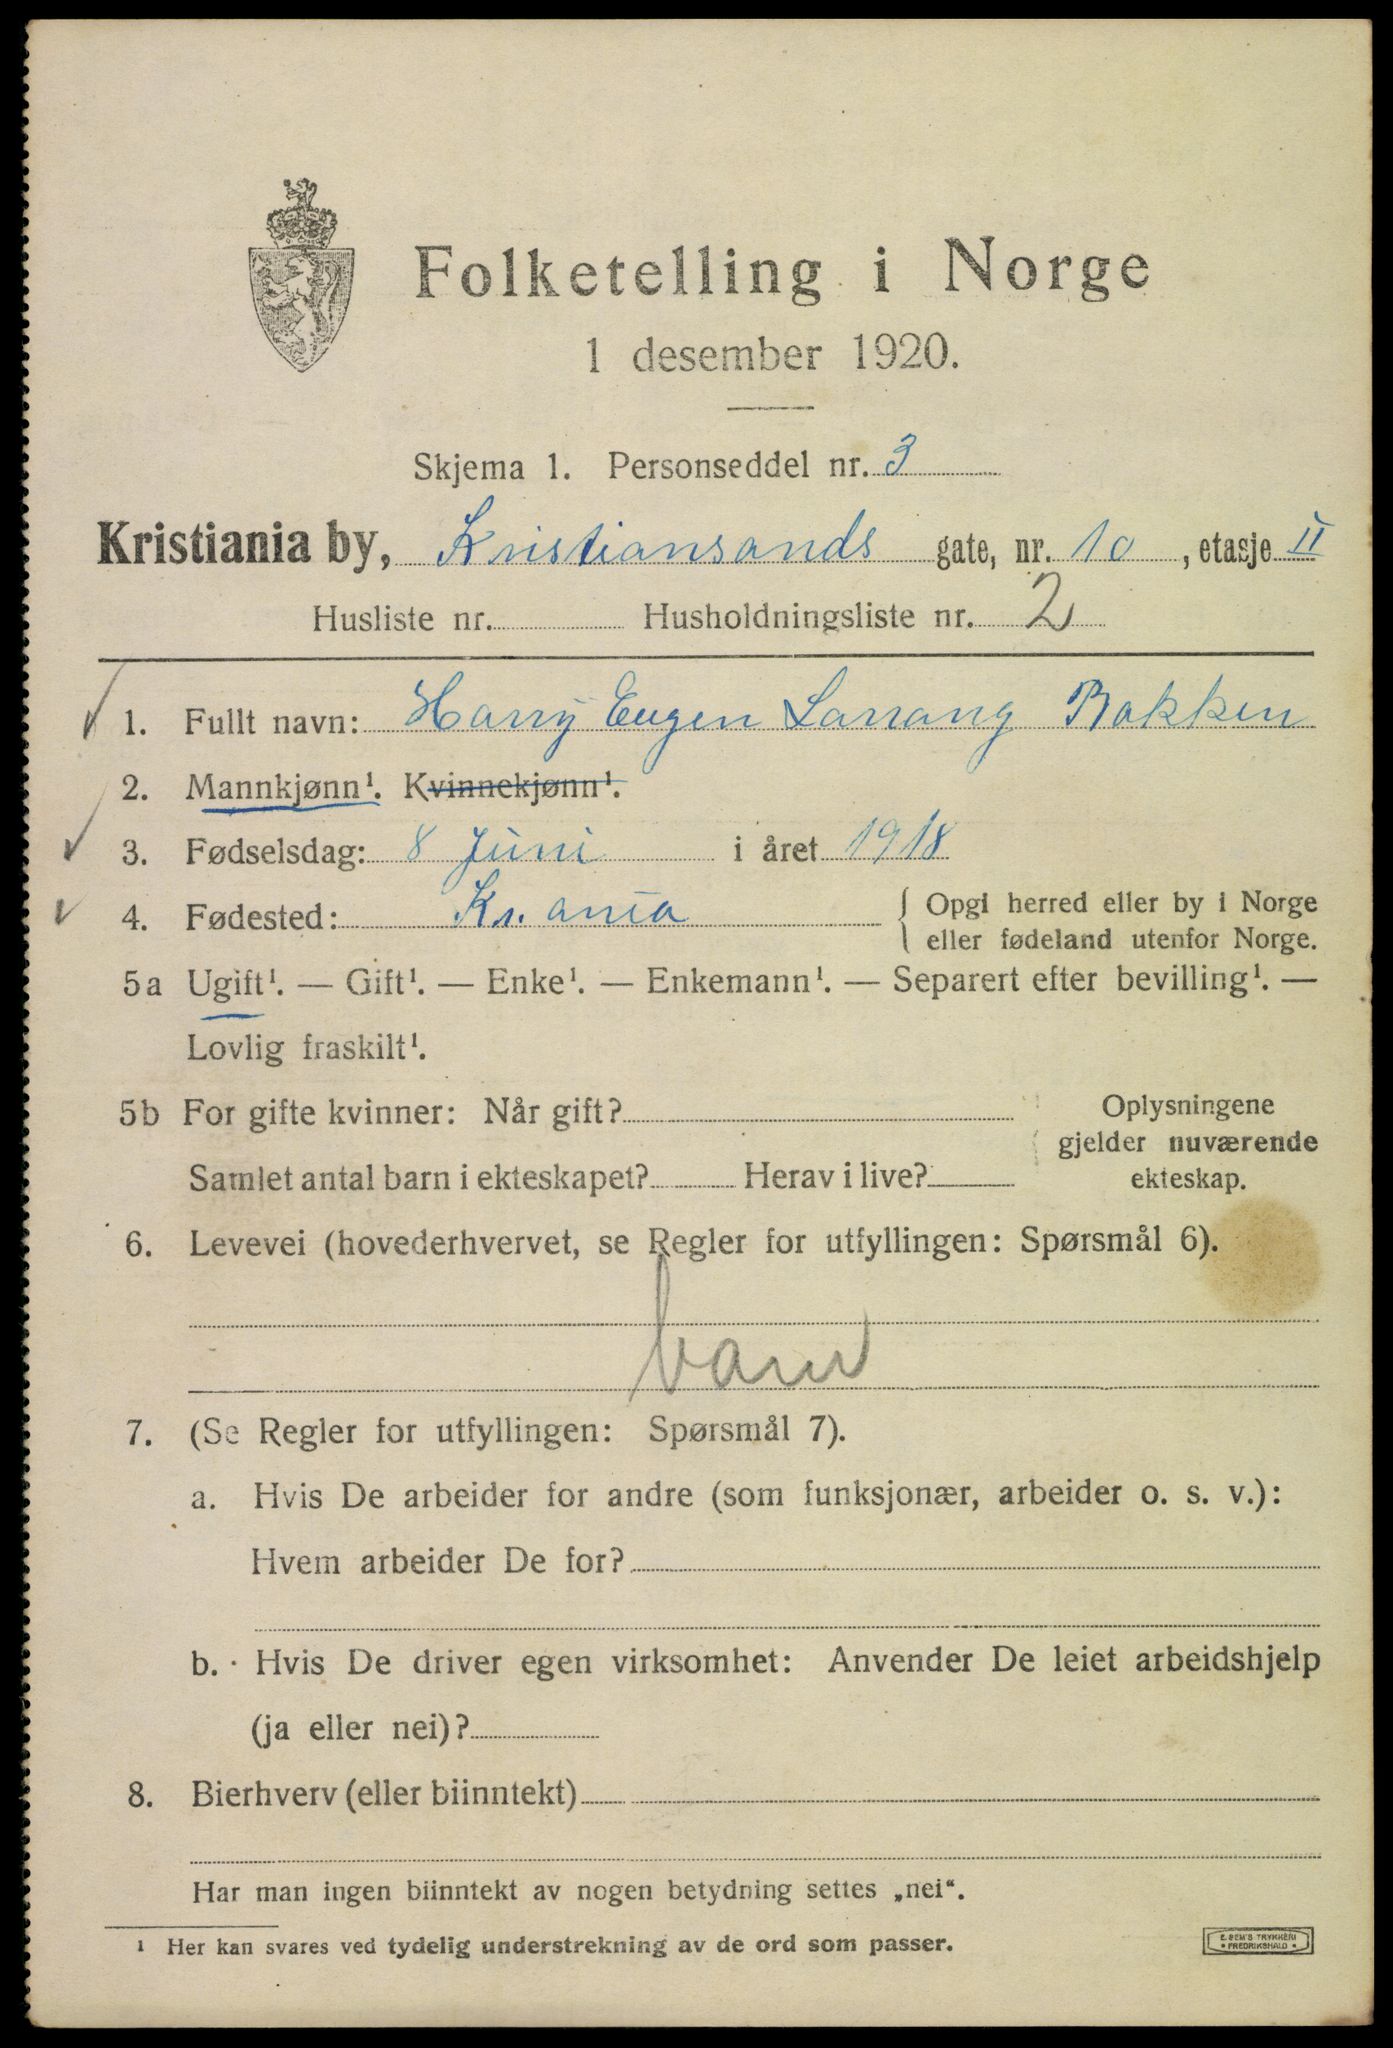 Folketelling i Norge
1 desember 1920.
Skjema 1. Personseddel nr. 3
Kristiania by, Kristiansands gate, nr. 10, etasje II
Husliste nr. Husholdningsliste nr. 2
1. Fullt navn: Harry Eugen Larrang Bakken
2. Mannkjønn¹. Kvinnekjønn¹.
3. Fødselsdag: 8 Juni i året 1918
4. Fødested: Kr.ania { Opgi herred eller by i Norge
eller fødeland utenfor Norge.
5a Ugift¹. — Gift¹. — Enke¹. — Enkemann¹. — Separert efter bevilling¹. —
Lovlig fraskilt¹.
5b For gifte kvinner: Når gift? Oplysningene
gjelder nuværende
Samlet antal barn i ekteskapet? Herav i live? ekteskap.
6. Levevei (hovederhvervet, se Regler for utfyllingen: Spørsmål 6).
barn
7. (Se Regler for utfyllingen: Spørsmål 7).
a. Hvis De arbeider for andre (som funksjonær, arbeider o. s. v.):
Hvem arbeider De for?
b. Hvis De driver egen virksomhet: Anvender De leiet arbeidshjelp
(ja eller nei)?
8. Bierhverv (eller biinntekt)
Har man ingen biinntekt av nogen betydning settes „nei“.
¹ Her kan svares ved tydelig understrekning av de ord som passer.
E. SEM'S TRYKKERI
• FREDRIKSHALD •